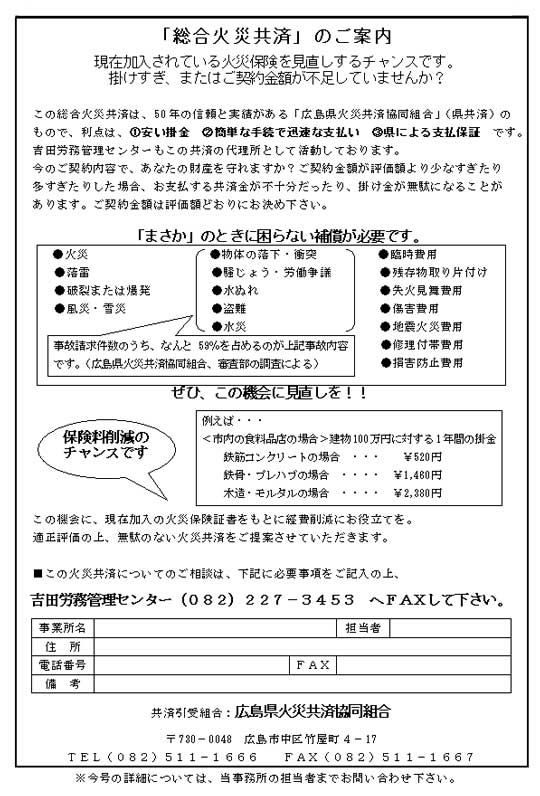 「総合火災共済」のご案内
現在加入されている火災保険を見直しするチャンスです。
掛けすぎ、またはご契約金額が不足していませんか？
この総合火災共済は、50年の信頼と実績がある「広島県火災共済協同組合」（県共済）の
もので、利点は、①安い掛金　②簡単な手続で迅速な支払い　③県による支払保証　です。
吉田労務管理センターもこの共済の代理所として活動しております。
今のご契約内容で、あなたの財産を守れますか？ご契約金額が評価額より少なすぎたり
多すぎたりした場合、お支払する共済金が不十分だったり、掛け金が無駄になることが
あります。ご契約金額は評価額どおりにお決め下さい。
「まさか」のときに困らない補償が必要です。
●火災
●落雷
●破裂または爆発
●風災・雪災
●物体の落下・衝突
●騒じょう・労働争議
●水ぬれ
●盗難
●水災
●臨時費用
●残存物取り片付け
●失火見舞費用
●傷害費用
●地震火災費用
●修理付帯費用
●損害防止費用
事故請求件数のうち、なんと 59％を占めるのが上記事故内容
です。（広島県火災共済協同組合、審査部の調査による）
ぜひ、この機会に見直しを！！
保険料削減の
チャンスです
例えば・・・
＜市内の食料品店の場合＞建物100万円に対する１年間の掛金
鉄筋コンクリートの場合　・・・　￥520円
鉄骨・プレハブの場合　・・・・　￥1,460円
木造・モルタルの場合　・・・・　￥2,380円
この機会に、現在加入の火災保険証書をもとに経費削減にお役立てを。
適正評価の上、無駄のない火災共済をご提案させていただきます。
■この火災共済についてのご相談は、下記に必要事項をご記入の上、
吉田労務管理センター（０８２）２２７－３４５３　へＦＡＸして下さい。
事業所名　担当者
住　所
電話番号　ＦＡＸ
備　考
共済引受組合：広島県火災共済協同組合
〒730－0048　広島市中区竹屋町４－17
ＴＥＬ（０８２）５１１－１６６６　ＦＡＸ（０８２）５１１－１６６７
※今号の詳細については、当事務所の担当者までお問い合わせ下さい。